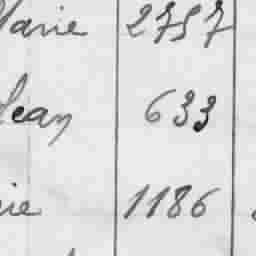 Marie 2757
Jean 633
rie 1186